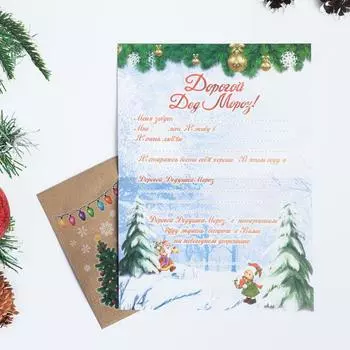 Дорогой
Дед Мороз!
Меня зовут
Мне лет. Я живу в
Я очень люблю
Я стараюсь вести себя хорошо. В этом году я
Дорогой Дедушка Мороз
Дорогой Дедушка Мороз, с нетерпением
буду ждать встречи с Вами
на новогоднем утреннике